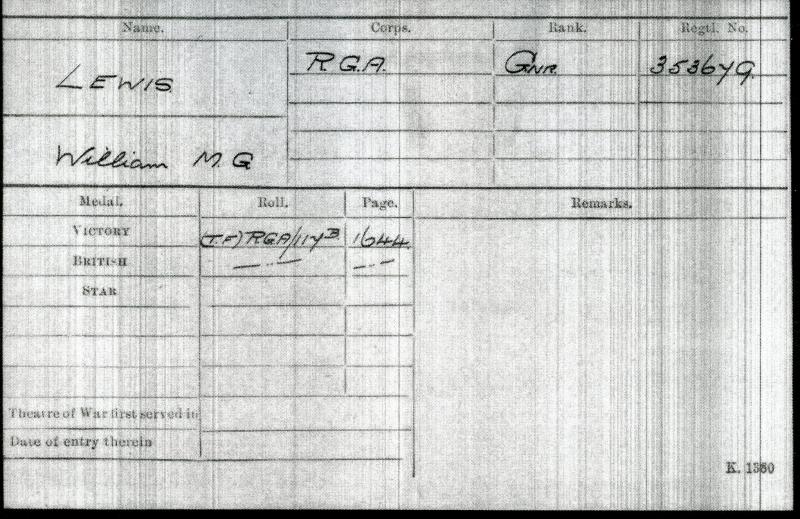 Name. Corps. Rank. Regtl. No.
LEWIS R.G.A. GNR. 353679.
William M. G
Medal. Roll. Page. Remarks.
VICTORY (T.F) R.G.A/117B 1644.
BRITISH —·— —·—
STAR
Theatre of War first served in
Date of entry therein
K. 1380